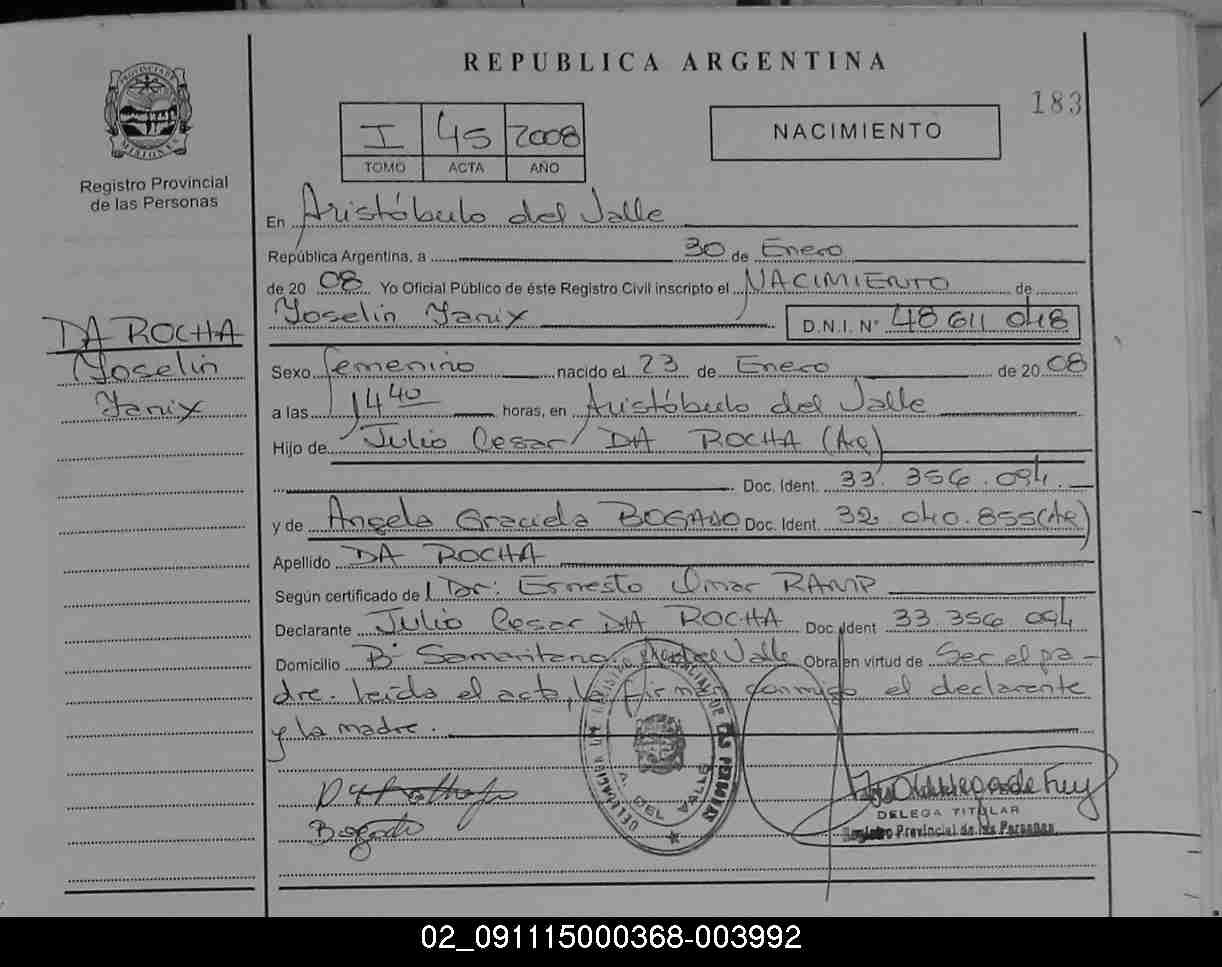 REPUBLICA ARGENTINA
183
PROVINCIA DE MISIONES
Registro Provincial
de las Personas
I 45 2008
TOMO ACTA AÑO
NACIMIENTO
En Aristóbulo del Valle
República Argentina, a 30 de Enero
de 2008 Yo Oficial Público de éste Registro Civil inscripto el NACIMIENTO de
Yoselin Yanix D.N.I. Nº 48 611 048
DA ROCHA
Yoselin
Yanix
Sexo femenino nacido el 23 de Enero de 2008
a las 14 40 horas, en Aristóbulo del Valle
Hijo de Julio Cesar DA ROCHA (Ar)
Doc. Ident. 33. 356. 094.
y de Angela Graciela BOGADO Doc. Ident. 32. 040. 855 (Ar)
Apellido DA ROCHA
Según certificado de Dr: Ernesto Omar RAMP
Declarante Julio Cesar DA ROCHA Doc. Ident 33 356 094
Domicilio Bº Samaritano. del Valle Obra en virtud de Ser el pa-
dre. Leída el acta, la firman conmigo el declarante
y la madre.
Bogado
DELEGACION REGISTRO DE LAS PERSONAS
A. DEL VALLE
de Frey
DELEGA TITULAR
Registro Provincial de las Personas
02_091115000368-003992